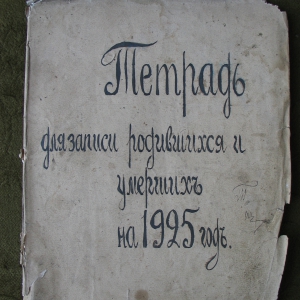 Тетрадь
для записи родившихся и
умершихъ
на 1925 годъ.